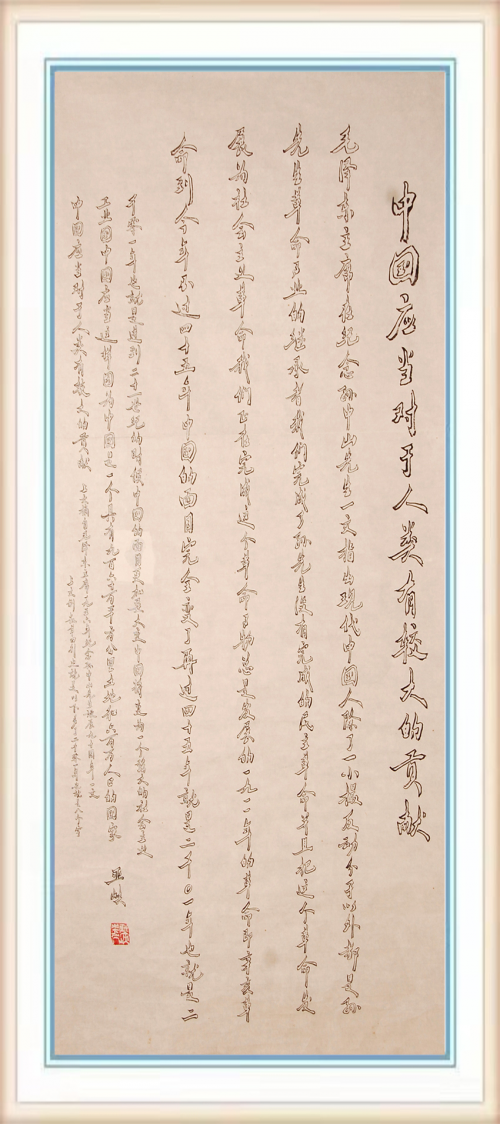 中國应当对于人类有较大的贡献
毛泽东主席在纪念孙中山先生一文指出现代中國人除了一小撮反动分子以外都是孙
先生革命事业的继承者我们完成了孙先生没有完成的民主革命并且把这个革命发
展为社会主义革命我們正在完成这个革命事物总是发展的一九一一年的革命即辛亥革
命到今年不过四十五年中國的面目完全变了再过四十五年就是二千〇一年也就是二
千零一年也就是进到二十一世纪的时候中國的面目更要大变中國将变为一个强大的社会主义
工业國中國应当这样因为中國是一个具有九百六十万平方公里土地和六万万人口的國家
中國应当对于人类有较大的贡献